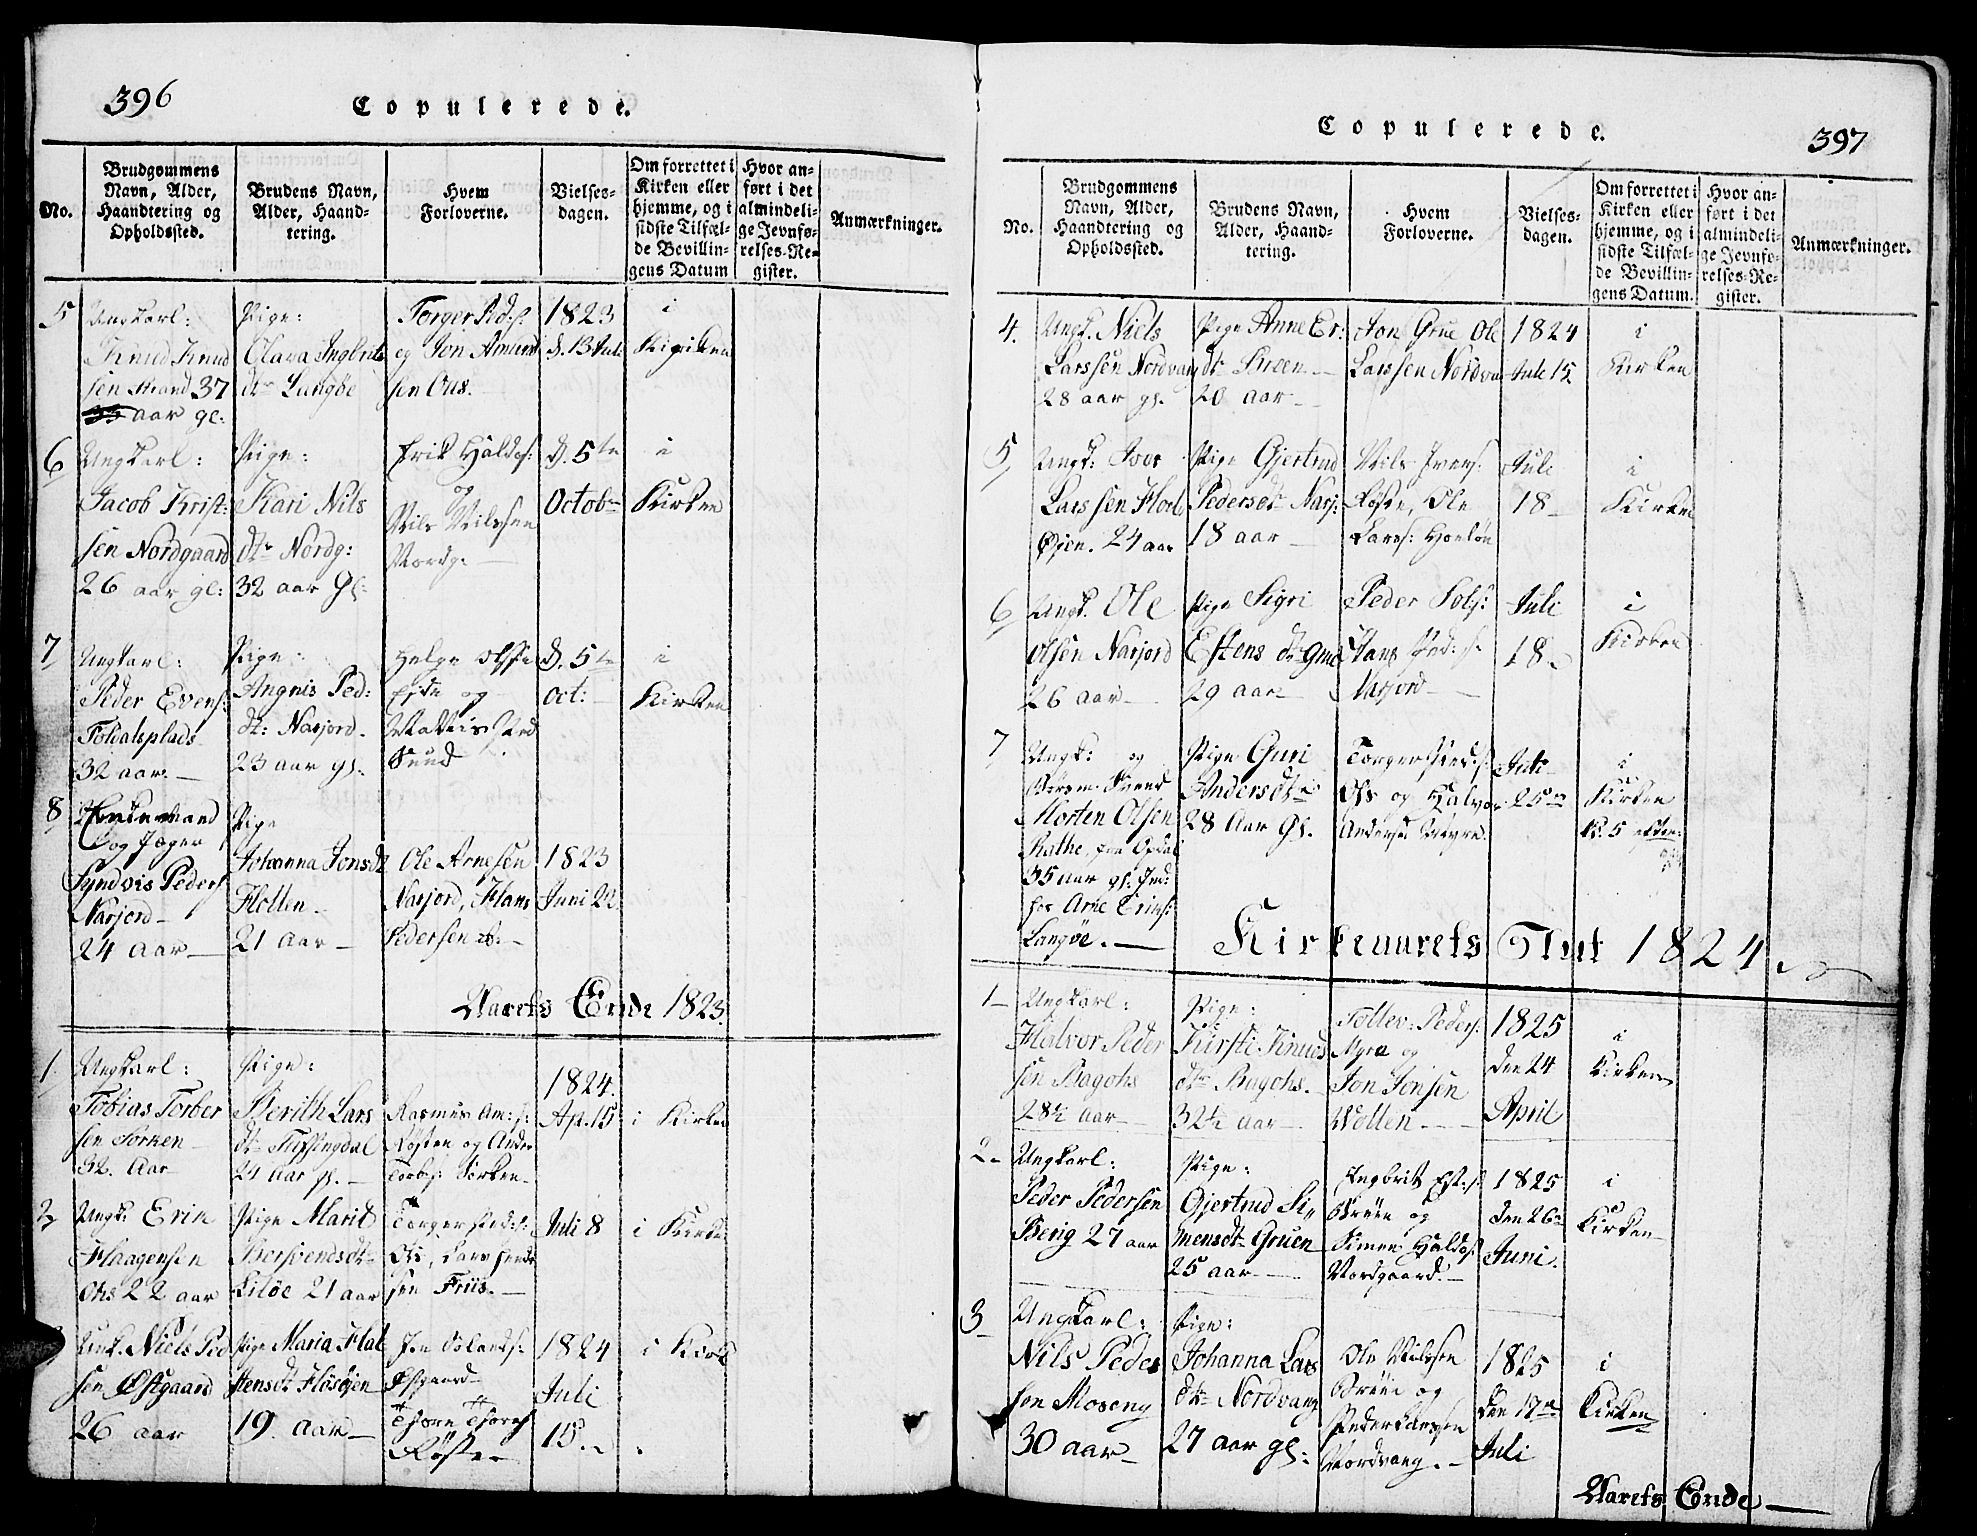 396
Copulerede.
No.
Brudgommens
Navn, Alder,
Haandtering og
Opholdssted.
Brudens Navn,
Alder, Haand-
tering.
Hvem
Forloverne.
Vielses-
dagen.
Om forrettet i
Kirken eller
hjemme, og i
sidste Tilfæl-
de Bevillin-
gens Datum
Hvor an-
ført i det
almindeli-
ge Jevnfø-
relses-Re-
gister.
Anmærkninger.
5
Ungkarl:
Knud Knud
sen Strand 37
35 aar gl:
Pige:
Olava Ingbrits
dtr Langøe
Torger Ped:s:
og Jon Amund
sen Ous.
1823
d. 13 Juli
i
Kirken
6
Ungkarl:
Jacob Krist:
sen Nordgaard
26 aar gl:
Pige:
Kari Nils
dtr Nordg:
32 aar Gl:
Erik Haldos:
og
Nils Nilssen
Nordg:
d. 5te
Octobr
i
Kirken
7
Ungkarl:
Peder Evens:
Toldalsplads
32 aar
Pige:
Angnis Ped:
dt: Narjord
23 aar gl.
Helge Olss
og
Sund
d. 5te
oct:
i
Kirken
8
og Jæger
Syndvis Peders:
Narjord
24 aar
Pige
Johanna Jonsdt
Holten
21 aar
Ole Arnesen
Narjord, Hans
Pedersen
1823
Juni 22
Aarets Ende 1823.
1
Ungkarl:
Tobias Torber
sen Sorken
32. Aar
Pige:
Berith Lars
dt Tufsingdal
24 aar gl.
Rasmus Am:s:
Røsten og Ander
Torbs: Sorken
1824.
Ap. 15
i Kirken
2
Ungk: Erik
Haagensen
Ohs 22 aar
Pige Marit
Bersvendsdtr
Liløe 21 aar
Torger Ped:s:
Os, Lars
sen Friis.
Juli 8
i Kirke
Unk. Niels Ped
sen Østgaard
26 aar
Pige Maria Hal
stensdt Flosøjen
19. aar
Jon
Østgaard
Thore Thores
Røste
1824
Juli
15.
i Kirk
397
Copulerede.
No.
Brudgommens
Navn, Alder,
Haandtering og
Opholdssted.
Brudens Navn,
Alder, Haand-
tering.
Hvem
Forloverne.
Vielses-
dagen.
Om forrettet i
Kirken eller
hjemme, og i
sidste Tilfæl-
de Bevillin-
gens Datum.
Hvor an-
ført i det
almindeli-
ge Jevnfø-
relses-Re-
gister.
Anmærkninger.
4.
Ungk. Niels
Larssen Nordvang
28 aar gl.
Pige Anne Er:
dt Breen
20 aar
Jon Grue Ole
Larssen Nordva
1824
Juli 15
i
Kirken
5
Ungk: Iver
Larssen Floe
Øjen. 24 aar
Pige Gjertrud
Pedersdt Narj:
18 aar
Nils Ivers:
Røste, Ole
Lars:
Juli
18
i
Kirken
6
Ungk. Ole
Olsen Narjord
26 aar
Pige Sigri
Estens dt
29 aar
Peder
Hans Ped:s:
Narjord
Juli
18.
i
Kirken
7
Ungk: og
Svend
Morten Olsen
Rathe, fra Opdal
35 aar gl: Ind:
hos Arne Eriks:
Langøe.
Pige Guri
Andersdtr
28 Aar Gl.
Torger Ped:s:
Os og Halvor
Anders:
Juli
25
i
Kirken
Kl. 5
Kirkeaarets Slut 1824.
1
Ungkarl:
Halvor Peder
sen Bagohs
28½ aar
Pige:
Kirsti Knuds
dtr Bagohs.
32½ aar
Tollev: Peders:
Myra og
Jon Jonsen
Volten
1825
den 24
April
i
Kirken
2
Ungkarl:
Peder Pedersen
Berg 27 aar
Pige:
Gjertrud Si„
mensdtr Gruen
25 aar
Ingbrit Est:s:
og
Simen Haldos:
Nordgaard.
1825
den 26
Juni.
i
Kirken
3
Ungkarl:
Nils Peder
sen Moseng
30 aar
Pige:
Johanna Lars
dtr Nordvang
27 aar gl:
Ole Nilssen
og
Peder Larssen
Nordvang.
1825
den 17
Juli
i
Kirken
Aarets Ende